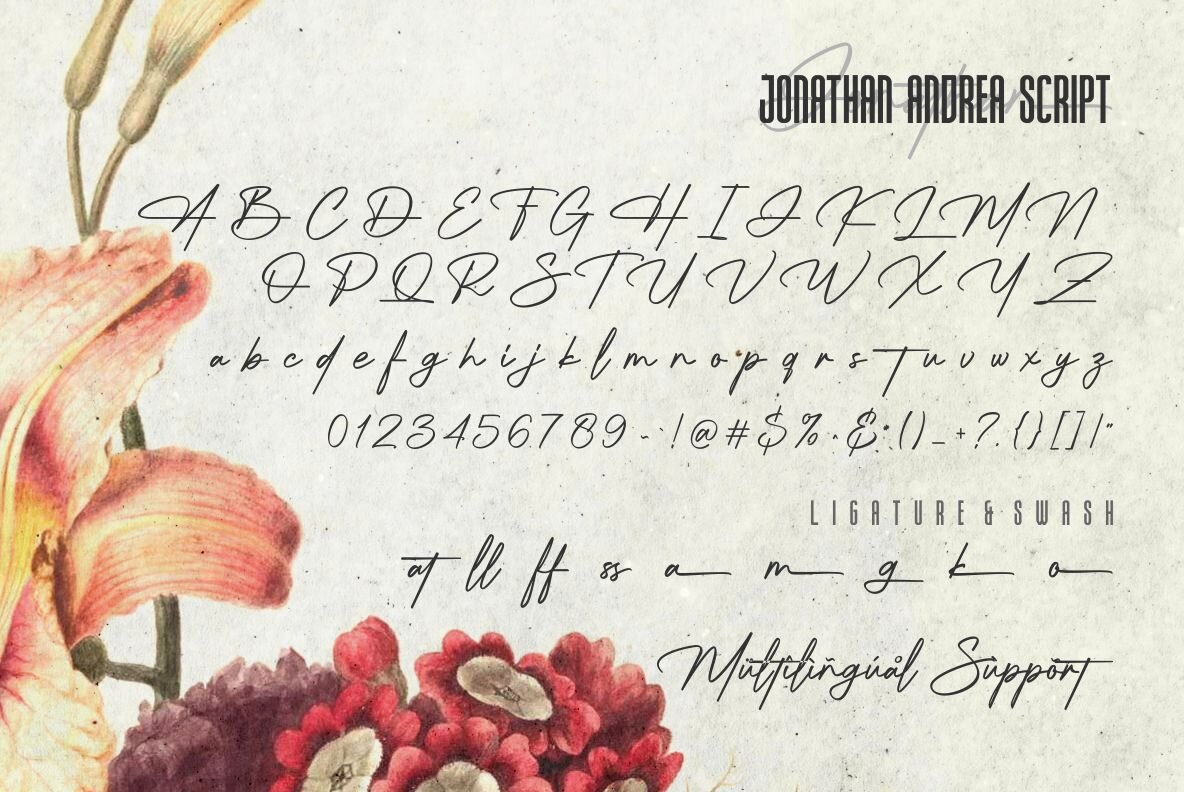 JONATHAN ANDREA SCRIPT
A B C D E F G H I J K L M N
O P Q R S T U V W X Y Z
a b c d e f g h i j k l m n o p q r s t u v w x y z
0 1 2 3 4 5 6 7 8 9 - ` ! @ # $ % ^ & * ( ) _ + ? . { } [ ] | "
LIGATURE & SWASH
at ll ff ss a m g k o
Múltïlïñgúål Süppört